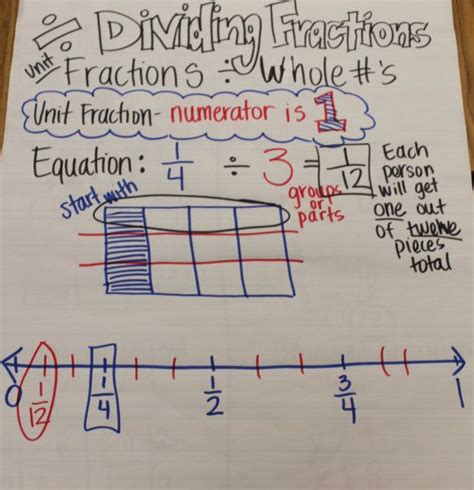 ÷ Dividing Fractions
unit Fractions ÷ Whole #'s
Unit Fraction- numerator is 1
Equation: 1/4 ÷ 3 = 1/12
groups or parts
Each person will get one out of twelve pieces total
start with
0 1/12 1/4 1/2 3/4 1